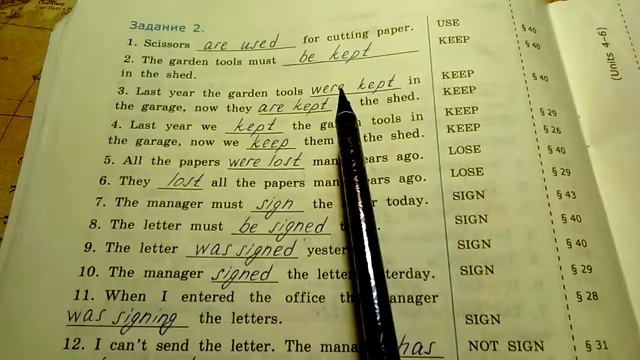 Задание 2.
1. Scissors are used for cutting paper. USE § 40
2. The garden tools must be kept KEEP § 40
in the shed.
3. Last year the garden tools were kept in KEEP § 40
the garage, now they are kept the shed. KEEP
4. Last year we kept the garden tools in KEEP § 29
the garage, now we keep them the shed. KEEP § 26
5. All the papers were lost many years ago. LOSE § 40
6. They lost all the papers many years ago. LOSE § 29
7. The manager must sign the today. SIGN § 43
8. The letter must be signed SIGN § 40
9. The letter was signed yester SIGN § 40
10. The manager signed the letter yesterday. SIGN § 29
11. When I entered the office the manager § 28
was signing the letters. SIGN
12. I can't send the letter. The mana has NOT SIGN § 31
(Units 4-6)